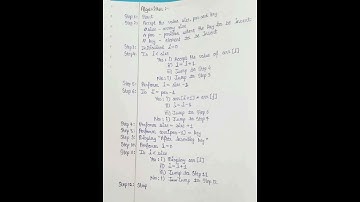 Algorithm :-
Step 1: Start
Step 2: Accept the value size, pos and key
# size - array size
# pos - position where the key to is insert
# key - element to is insert
Step 3: Initialize i=0
Step 4: Is i < size
Yes : i) Accept the value of arr [i]
ii) i = i + 1
iii) Jump to Step 4
No : i) Jump to Step 5
Step 5: Perform i = size - 1
Step 6: Is i = pos - 1
Yes : i) arr[i+1] = arr [i]
ii) i = i - 1
iii) Jump to Step 6
No : i) Jump to Step 7
Step 7: Perform size = size + 1
Step 8: Perform arr[pos-1] = key
Step 9: Display "After inserting key"
Step 10: Perform i = 0
Step 11: Is i < size
Yes : i) Display arr [i]
ii) i = i + 1
iii) Jump to Step 11
No : i) Jump to Step 12
Step 12: Stop